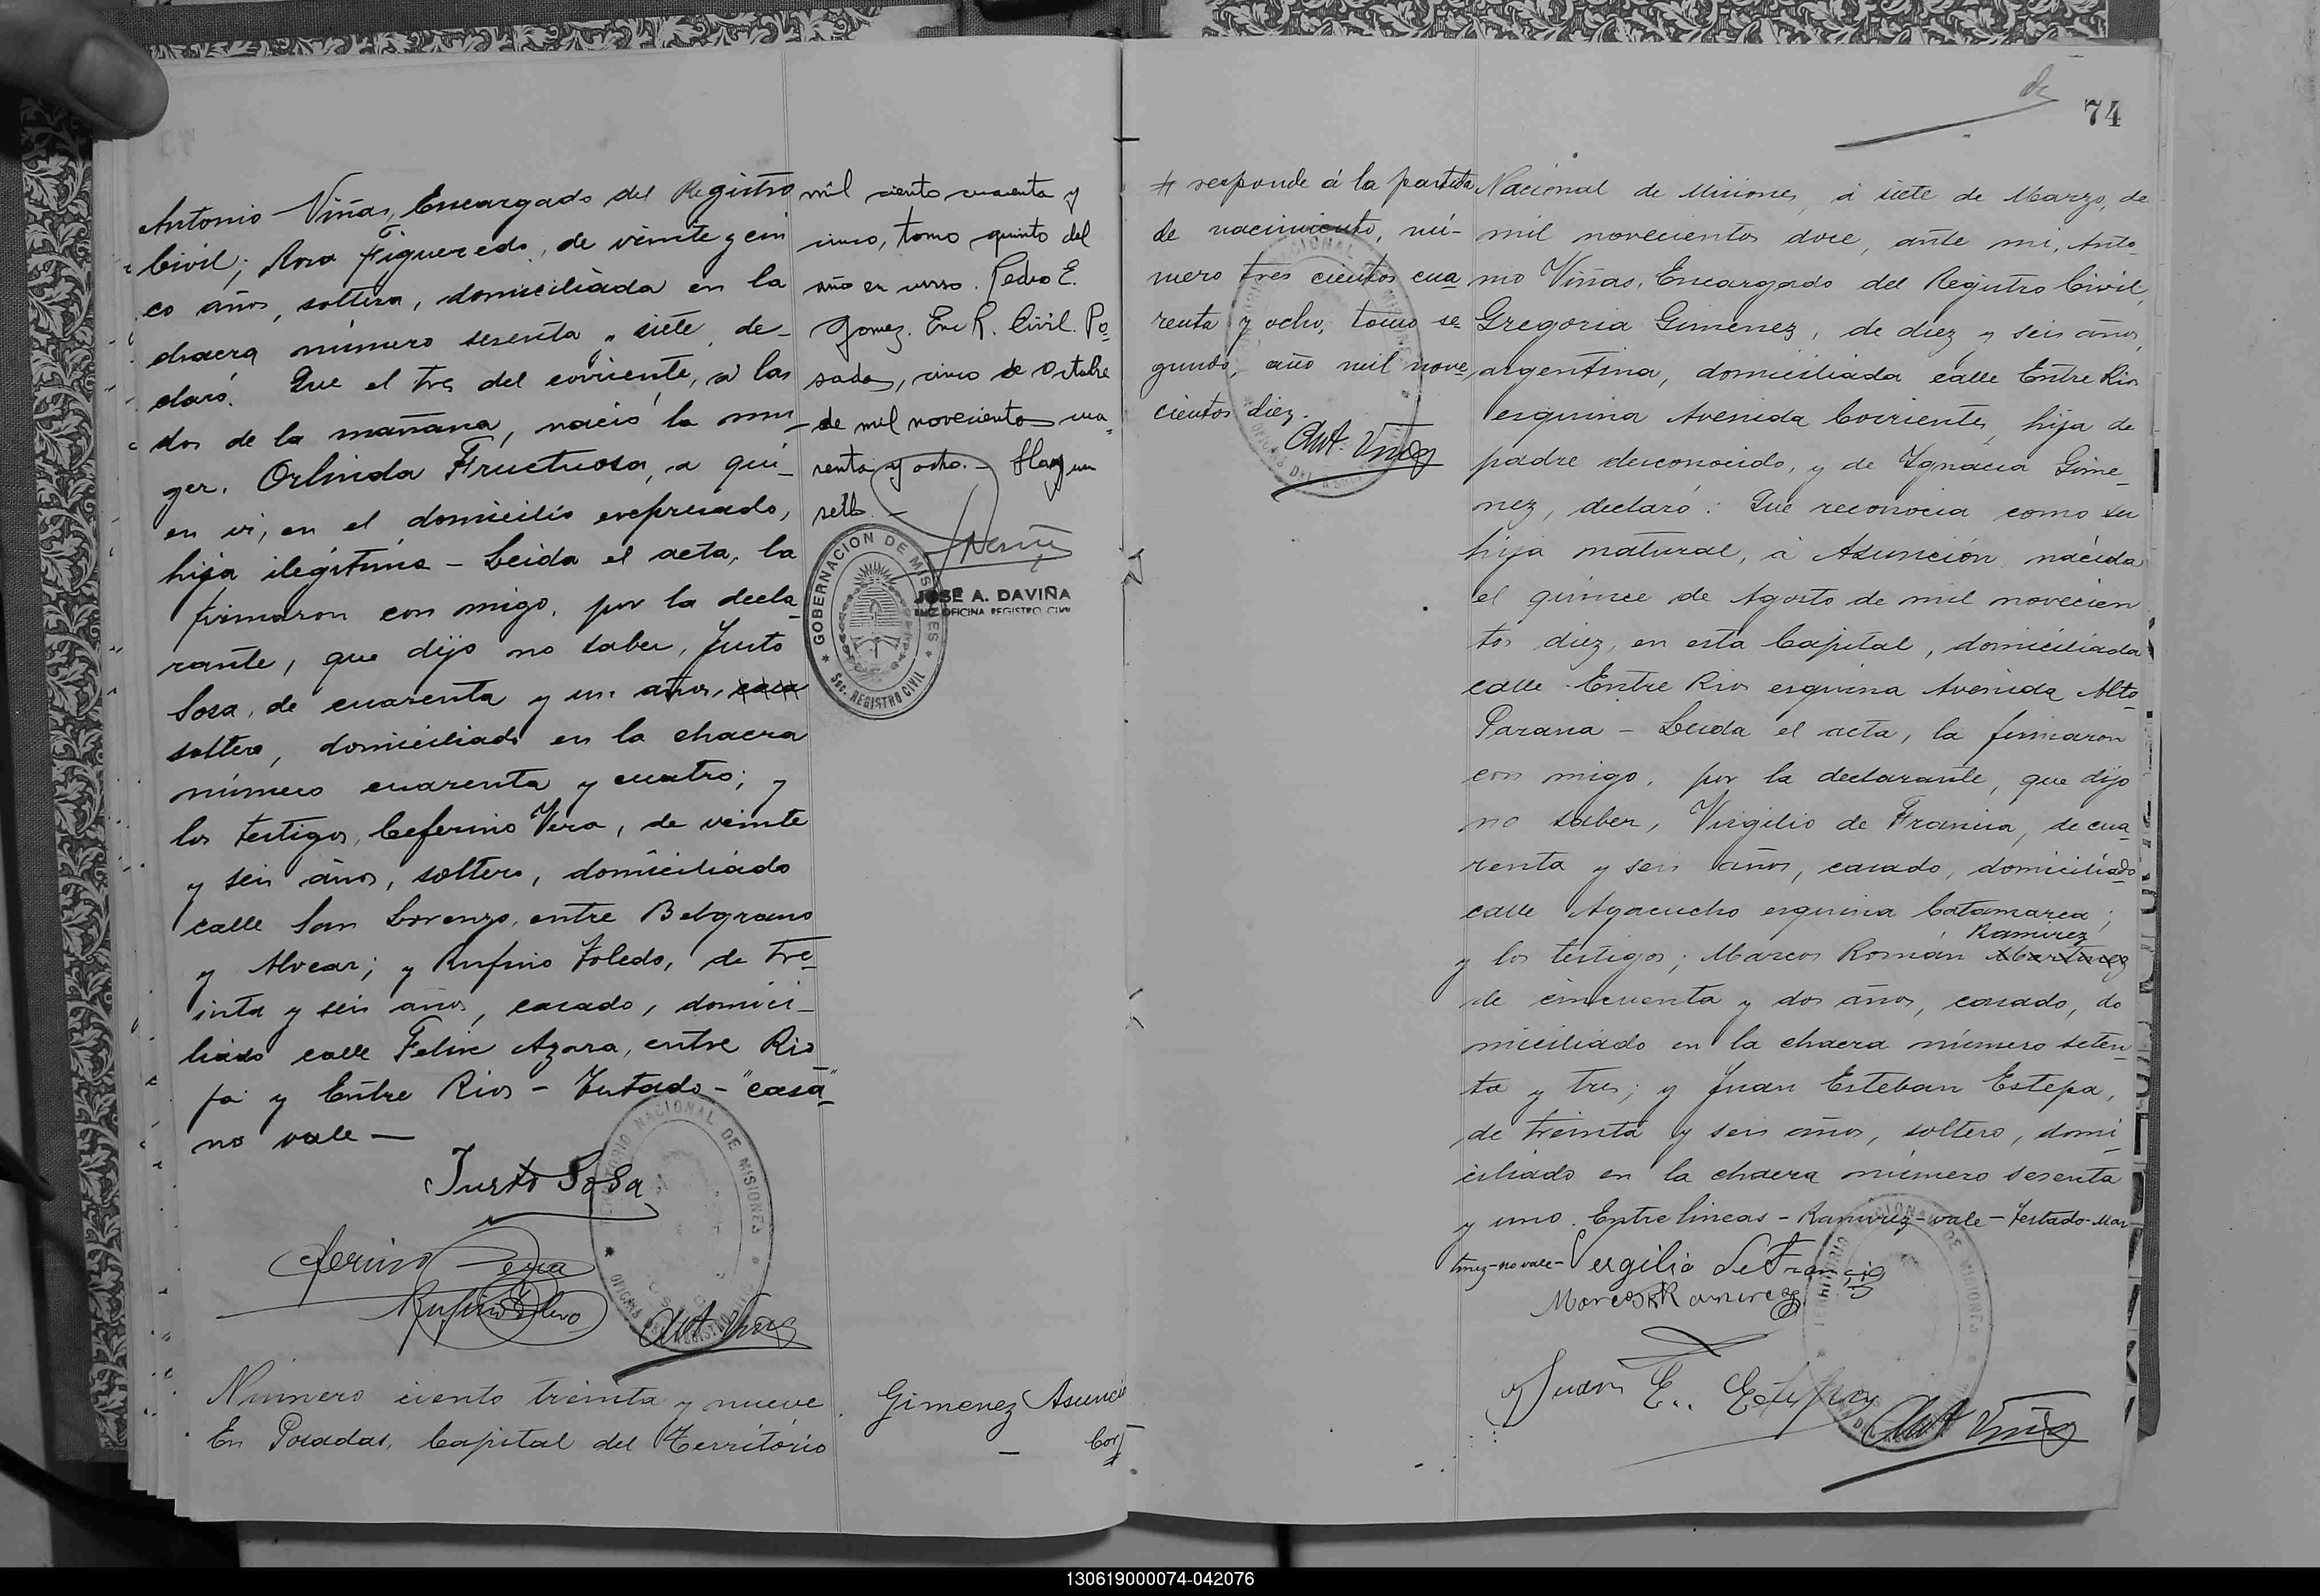 Antonio Viñas, Encargado del Registro
Civil; Rosa Figueredo, de veinte y cin
co años, soltera, domiciliada en la
chacra número sesenta y siete, de-
claró. Que el tres del corriente, á las
dos de la mañana, nació la mu-
ger, Orlinda Fructuosa, a qui-
en vi, en el domicilio expresado,
hija ilegítima - Leida el acta, la
firmaron con migo, por la decla-
rante, que dijo no saber, Justo
Sosa, de cuarenta y un años, casa
soltero, domiciliado en la chacra
número cuarenta y cuatro; y
los testigos, Ceferino Vera, de veinte
y seis años, soltero, domiciliado
calle San Lorenzo, entre Belgrano
y Alvear; y Rufino Toledo, de tre-
inta y seis años, casado, domici-
liado calle Felix Azara, entre Rio
ja y Entre Rios - Testado - "casa"
no vale —
Justo Sosa
Ceferino Vera
Rufino Toledo
Ant Viñas
TERRITORIO NACIONAL DE MISIONES
mil ciento cuarenta y
cinco, tomo quinto del
año en curso. Pedro E.
Gomez. Enc R. Civil. Po-
sadas, cinco de Octubre
de mil novecientos cua-
renta y ocho. - Hay un
sello. -
GOBERNACION DE MISIONES
Sec. REGISTRO CIVIL
JOSE A. DAVIÑA
OFICINA REGISTRO CIVIL
Número ciento treinta y nueve.
En Posadas, Capital del Territorio
Gimenez Asunció
— Cor
74
responde á la partida
de nacimiento, nú-
mero tres cientos cua-
renta y ocho, tomo se-
gundo, año mil nove
cientos diez.
Ant. Viñas
Nacional de Misiones, á siete de Marzo, de
mil novecientos doce, ante mi, Anto-
nio Viñas, Encargado del Registro Civil,
Gregoria Gimenez, de diez y seis años,
argentina, domiciliada calle Entre Rios
esquina Avenida Corrientes, hija de
padre desconocido, y de Ignacia Gime-
nez, declaró: Que reconocia como su
hija natural, á Asunción, nacida
el quince de Agosto de mil novecien
tos diez, en esta Capital, domiciliada
calle Entre Rios esquina Avenida Alto
Parana - Leida el acta, la firmaron
con migo, por la declarante, que dijo
no saber, Virgilio de Francia, de cua-
renta y seis años, casado, domiciliado
calle Ayacucho esquina Catamarca;
Ramirez
y los testigos; Marcos Román Martinez
de cincuenta y dos años, casado, do
miciliado en la chacra número seten-
ta y tres; y Juan Esteban Estepa,
de treinta y seis años, soltero, domi-
ciliado en la chacra número sesenta
y uno. Entre lineas - Ramirez - vale - Testado - Mar
tinez - no vale - Vergilio de Francia
Marcos R Ramirez
Juan E. Estepa
Ant Viñas
TERRITORIO NACIONAL DE MISIONES
130619000074-042076